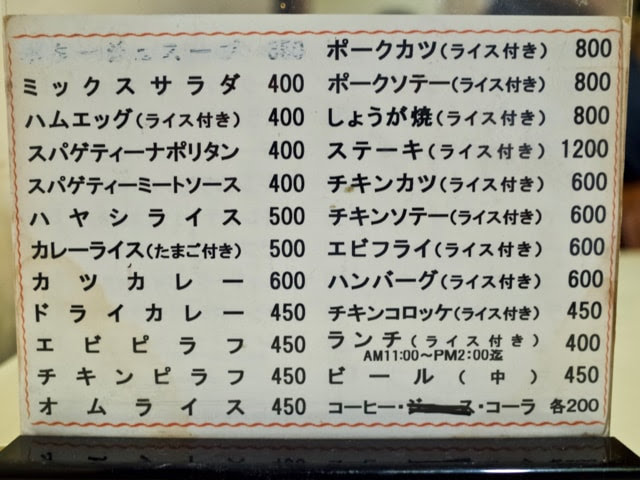 ミックスサラダ 400
ハムエッグ(ライス付き) 400
スパゲティーナポリタン 400
スパゲティーミートソース 400
ハヤシライス 500
カレーライス(たまご付き) 500
カツカレー 600
ドライカレー 450
エビピラフ 450
チキンピラフ 450
オムライス 450
ポークカツ(ライス付き) 800
ポークソテー(ライス付き) 800
しょうが焼(ライス付き) 800
ステーキ(ライス付き) 1200
チキンカツ(ライス付き) 600
チキンソテー(ライス付き) 600
エビフライ(ライス付き) 600
ハンバーグ(ライス付き) 600
チキンコロッケ(ライス付き) 450
ランチ(ライス付き) 400
AM11:00〜PM2:00迄
ビール(中) 450
コーヒー・ジュース・コーラ 各200